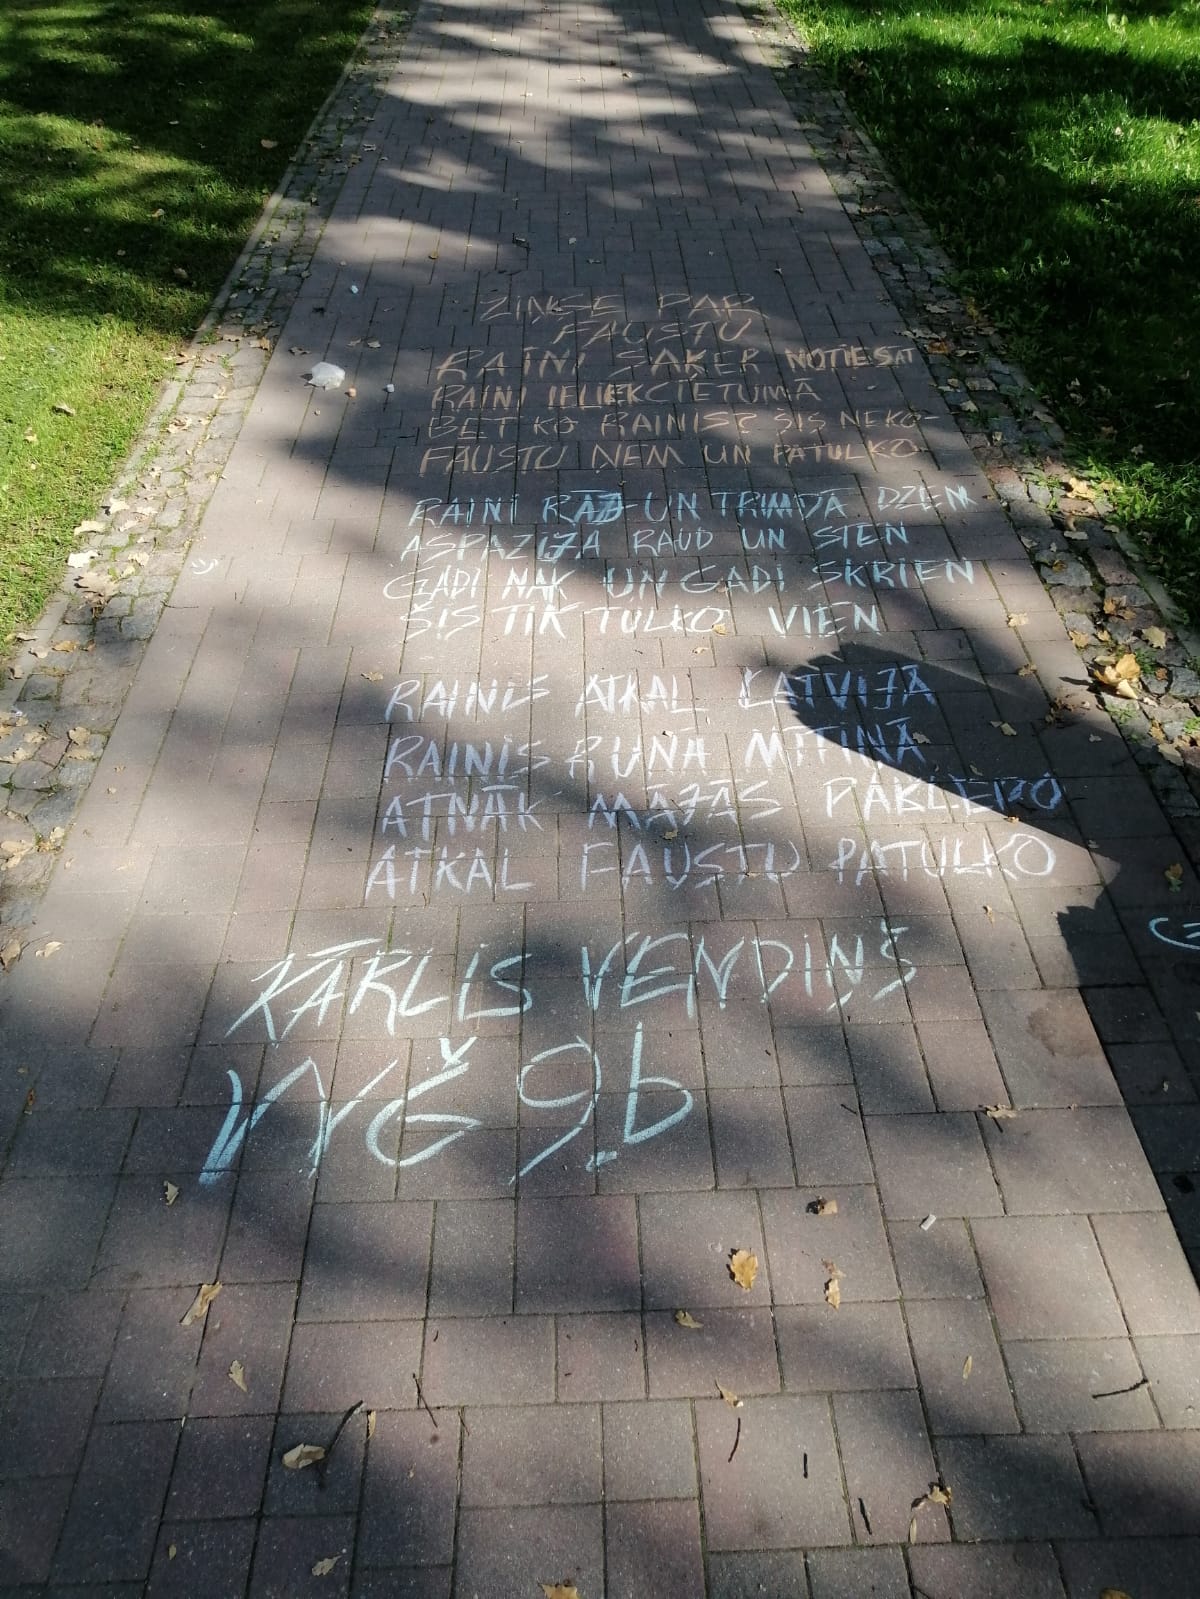 ZIŅĢE PAR
FAUSTU
RAINI SAĶER NOTIESĀT
RAINI IELIEK CIETUMĀ
BET KO RAINIS? ŠIS NEKO-
FAUSTU ŅEM UN PATULKO
RAINI RĀJ UN TRIMDĀ DZEN
ASPAZIJA RAUD UN STEN
GADI NĀK UN GADI SKRIEN
ŠIS TIK TULKO VIEN
RAINIS ATKAL LATVIJĀ
RAINIS RUNĀ MĪTIŅĀ
ATNĀK MĀJĀS PĀRĻEPO
ATKAL FAUSTU PATULKO
KĀRLIS VĒRDIŅŠ
VVĢ 9.b